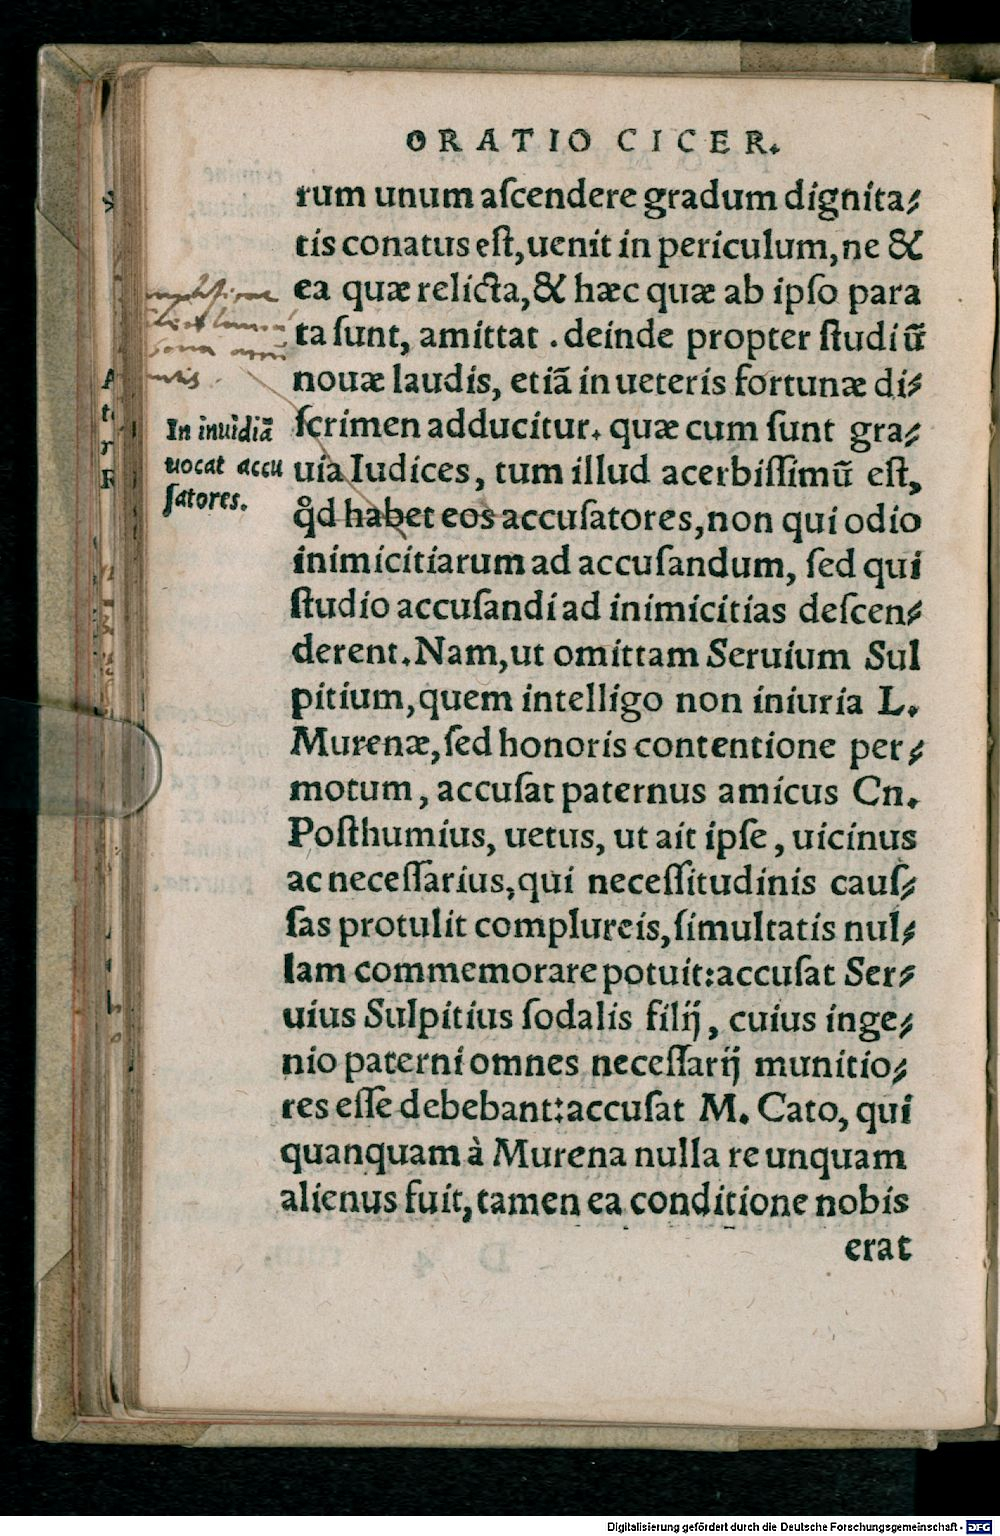 ORATIO CICER.
rum unum aſcendere gradum dignita⸗
tis conatus eſt, uenit in periculum, ne &
ea quæ relicta, & hæc quæ ab ipſo para
ta ſunt, amittat . deinde propter ſtudiũ
nouæ laudis, etiã in ueteris fortunæ di⸗
ſcrimen adducitur. quæ cum ſunt gra⸗
uia Iudices, tum illud acerbiſſimũ eſt,
q̊d habet eos accuſatores, non qui odio
inimicitiarum ad accuſandum, ſed qui
ſtudio accuſandi ad inimicitias deſcen⸗
derent. Nam, ut omittam Seruium Sul
pitium, quem intelligo non iniuria L.
Murenæ, ſed honoris contentione per⸗
motum, accuſat paternus amicus Cn.
Poſthumius, uetus, ut ait ipſe, uicinus
ac neceſſarius, qui neceſſitudinis cauſ⸗
ſas protulit complureis, ſimultatis nul⸗
lam commemorare potuit: accuſat Ser⸗
uius Sulpitius ſodalis filij, cuius inge⸗
nio paterni omnes neceſſarij munitio⸗
res eſſe debebant: accuſat M. Cato, qui
quanquam à Murena nulla re unquam
alienus fuit, tamen ea conditione nobis
erat
In inuidiã
uocat accu
ſatores.
Digitalisierung gefördert durch die Deutsche Forschungsgemeinschaft - DFG